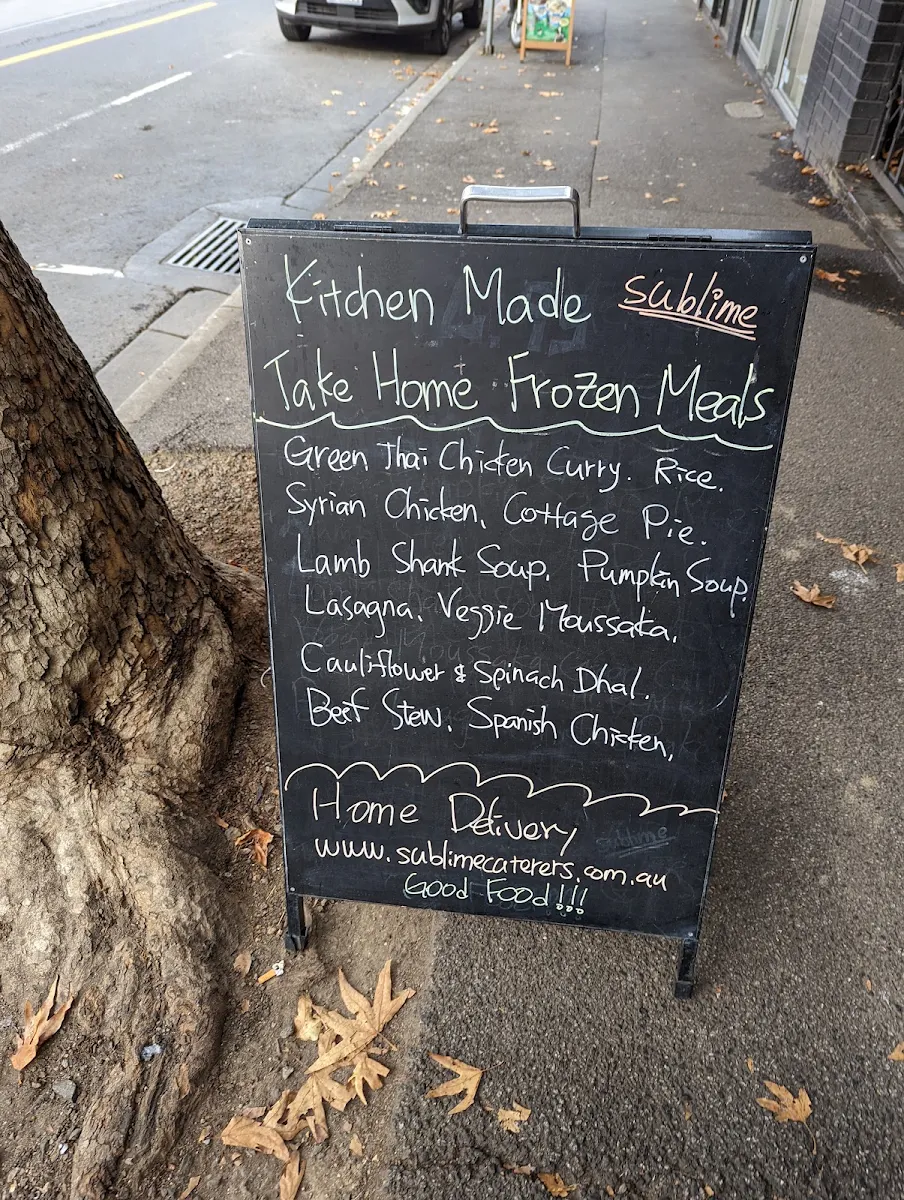 Kitchen Made sublime
Take Home Frozen Meals
Green Thai Chicken Curry. Rice.
Syrian Chicken, Cottage Pie.
Lamb Shank Soup. Pumpkin Soup.
Lasagna. Veggie Moussaka.
Cauliflower & Spinach Dhal.
Beef Stew. Spanish Chicken,
Home Delivery
sublime
www.sublimecaterers.com.au
Good Food!!!